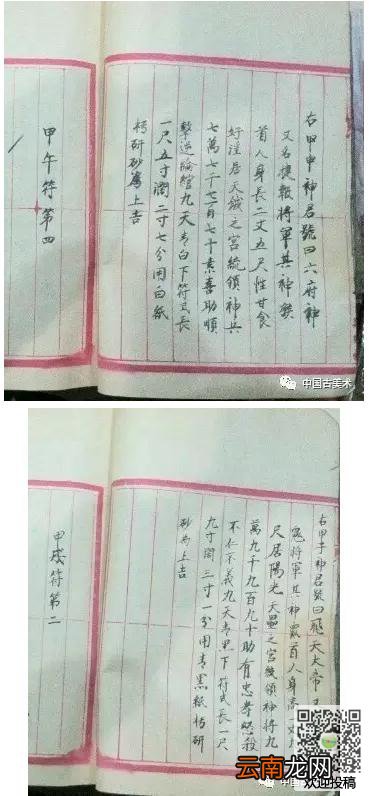 右甲申神君號曰六府神
又名捷報將軍其神
首人身長二丈五尺性甘食
好淫居天鉞之宮統領神兵
七萬七千七百七十素喜助順
擊逆論綰九天青白下符式長
一尺五寸濶二寸七分用白紙
朽研砂為上吉
甲午符第四
中国古美术
右甲子神君號曰飛天大帝又
將軍其神鼠首人身高一丈
尺居陽光天壘之宮統領神將九
萬九千九百九十助有忠孝怒殺
不仁不義九天青黑下符式長一尺
九寸濶三寸一分用青黑紙朽研
砂為上吉
甲戌符第二
云南龙网
欢迎投稿